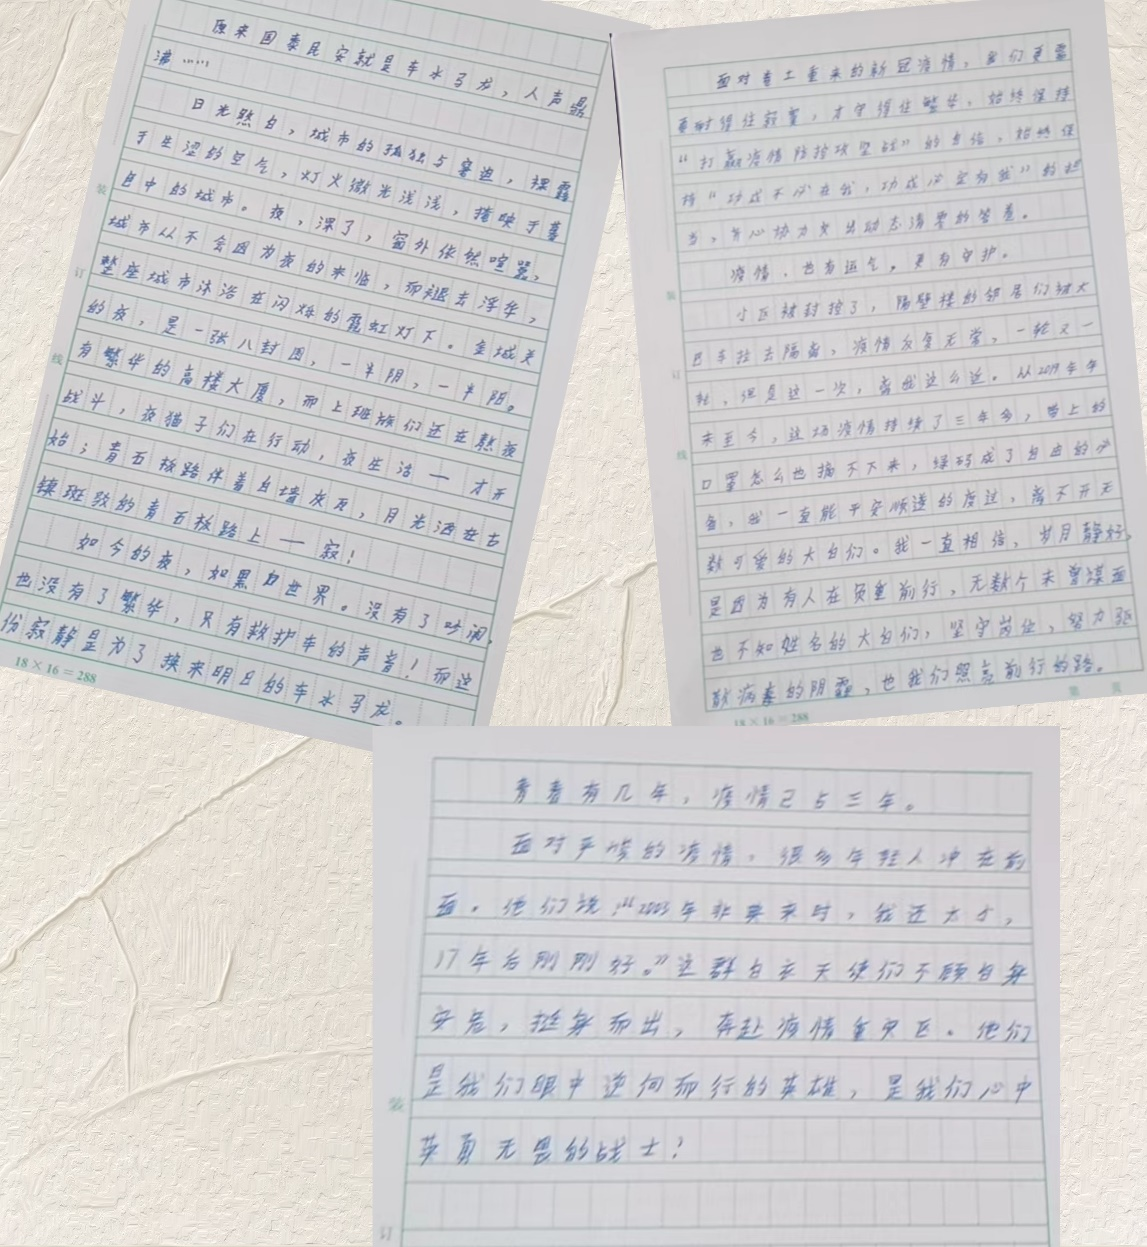 原来国泰民安就是车水马龙，人声鼎
沸……
日光熬白，城市的孤独与窘迫，裸露
于生涩的空气，灯火微光浅浅，掩映于暮
色中的城市。夜，深了，窗外依然喧嚣，
城市从不会因为夜的来临，而褪去浮华，
整座城市沐浴在闪烁的霓虹灯下。金城关
的夜，是一张八封图，一半阴，一半阳。
有繁华的高楼大厦，而上班族们还在熬夜
战斗，夜猫子们在行动，夜生活——才开
始；青石板路伴着白墙灰瓦，月光洒在古
镇斑驳的青石板路上——寂！
如今的夜，如黑白世界。没有了吵闹，
也没有了繁华，只有救护车的声音！而这
份寂静是为了换来明日的车水马龙。
18×16=288
装
订
线
面对卷土重来的新冠疫情，我们更需
要耐得住寂寞，才守得住繁华，始终保持
“打赢疫情防控攻坚战”的自信，始终保
持“功成不必在我，功成必定有我”的担
当，齐心协力交出动态清零的答卷。
疫情，也有运气，更有守护。
小区被封控了，隔壁楼的邻居们被大
巴车拉去隔离，疫情反复无常，一轮又一
轮，但是这一次，离我这么近。从2019年年
末至今，这场疫情持续了三年多，带上的
口罩怎么也摘不下来，绿码成了自由的必
备，我一直能平安顺遂的度过，离不开无
数可爱的大白们。我一直相信，岁月静好，
是因为有人在负重前行，无数个未曾谋面
也不知姓名的大白们，坚守岗位，努力驱
散病毒的阴霾，也我们照亮前行的路。
18×16=288
第 页
装
订
线
青春有几年，疫情已占三年。
面对严峻的疫情，很多年轻人冲在前
面。他们说：“2003年非典来时，我还太小，
17年后刚刚好。”这群白衣天使们不顾自身
安危，挺身而出，奔赴疫情重灾区。他们
是我们眼中逆向而行的英雄，是我们心中
英勇无畏的战士！
装
订